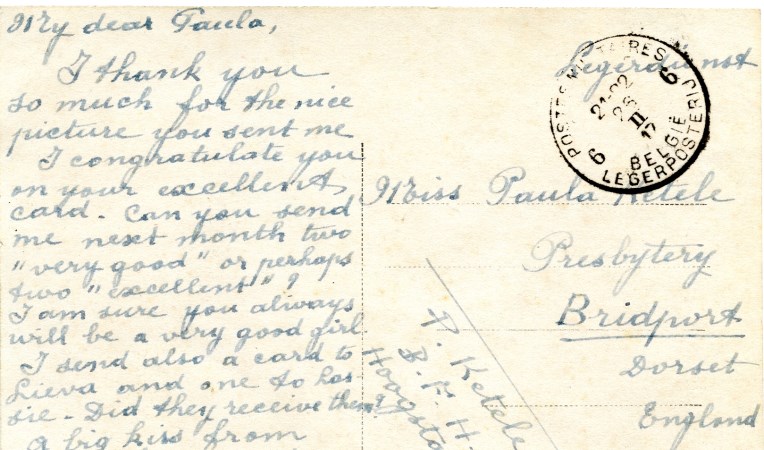 My dear Paula,
I thank you
so much for the nice
picture you sent me
I congratulate you
on your excellent
card. Can you send
me next month two
"very good" or perhaps
two "excellent"?
I am sure you always
will be a very good girl
I send also a card to
Lieva and one to
sie. Did they receive them?
A big kiss from
Legerdienst
POSTES MILITAIRES
6 6
21-22
26
II
17
BELGIË
LEGERPOSTERIJ
Miss Paula Ketele
Presbytery
Bridport
Dorset
England
P. Ketele
B. F. H.
Hoogsta